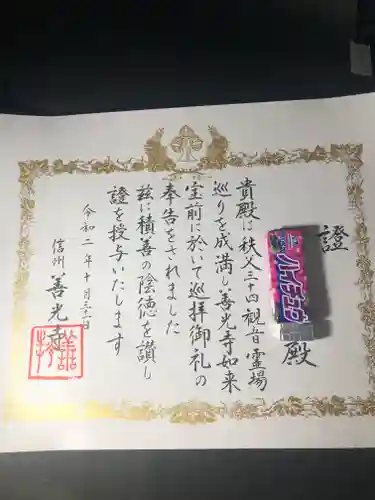 證
殿
貴殿は秩父三十四観音霊場
巡りを成満し善光寺如来
宝前に於いて巡拝御礼の
奉告をされました
茲に積善の陰徳を讃し
證を授与いたします
令和二年十月三十一日
信州 善光寺
ハイチュウ